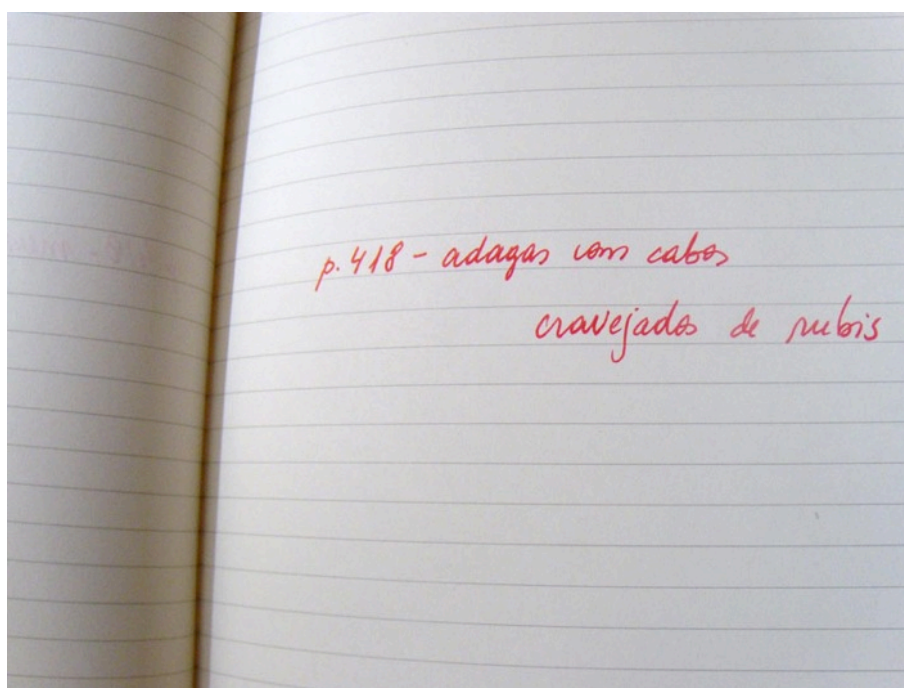 p. 418 - adagas com cabos
cravejados de rubis